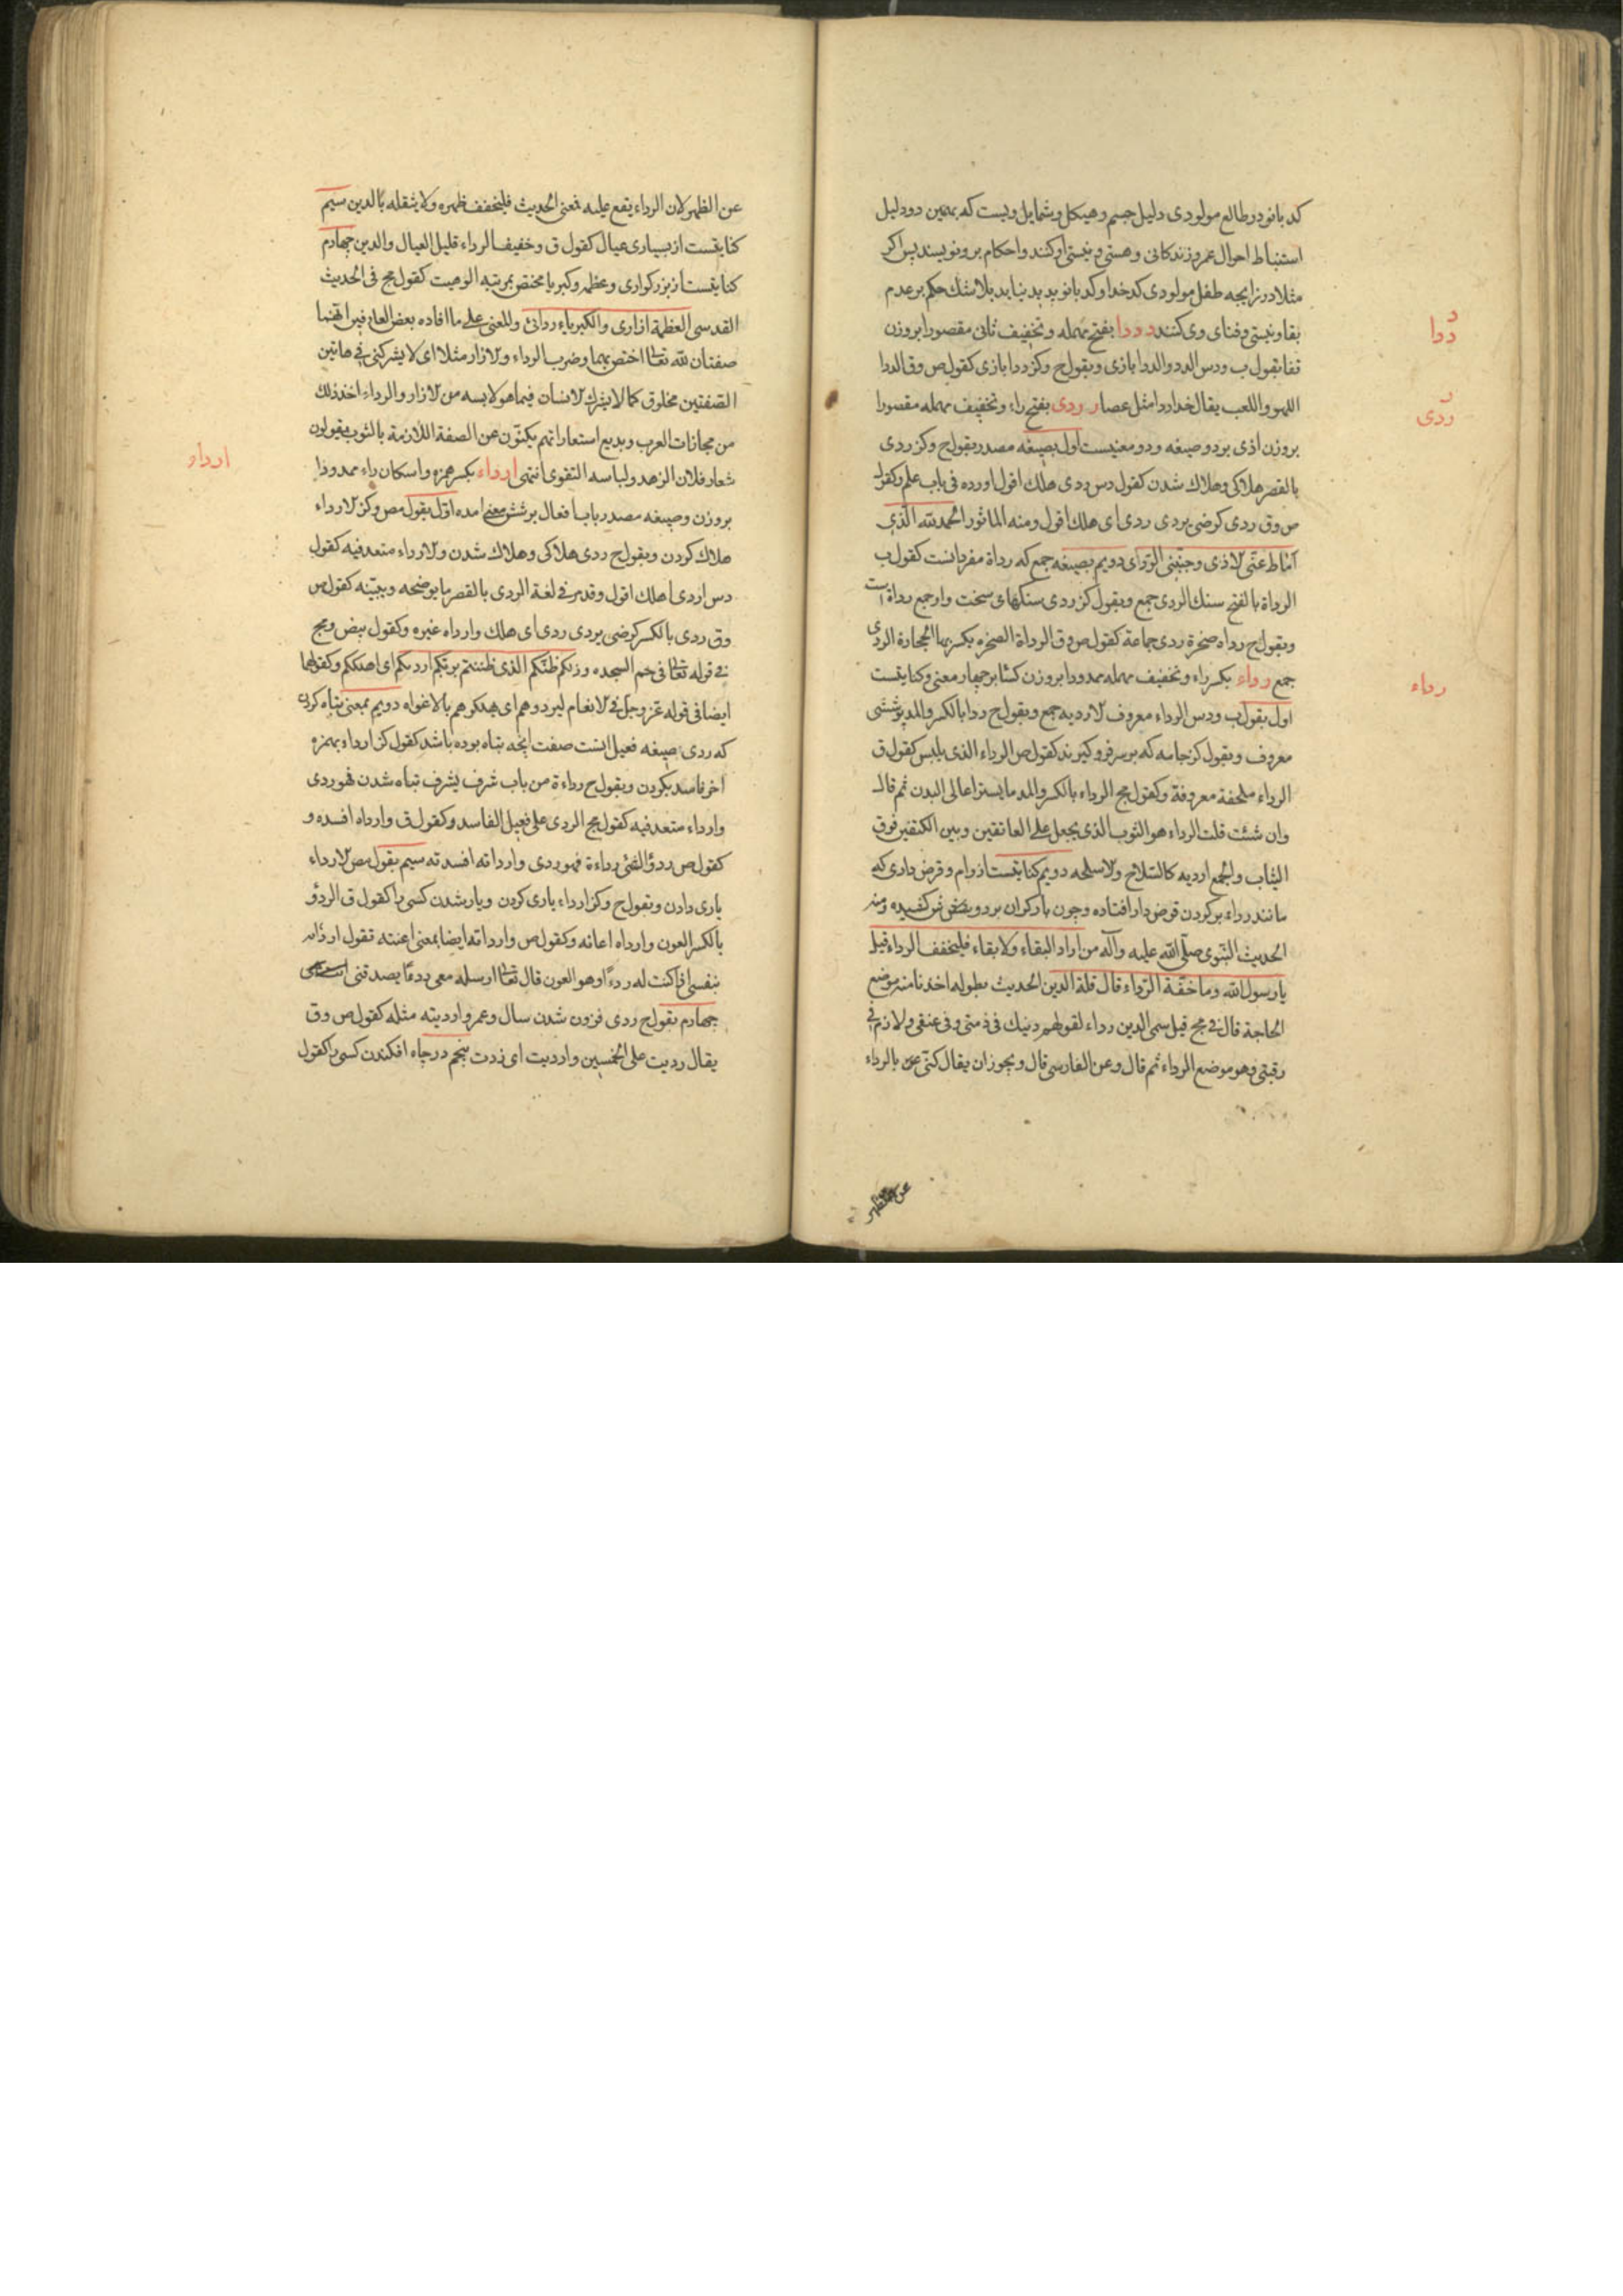 کدبانو در طالع مولودی دلیل جسم و هیکل و شمایل ویست که بهمین دو دلیل
استنباط احوال عمر و زندکانی و هستی و نیستی او کنند و احکام برو نویسند پس اکر
مثلا در زایجه طفل مولودی کدخدا و کدبانو پدید نیاید بلاشک حکم بر عدم
بقا و نیستی و فنای وی کنند ددا بفتح مهمله و تخفیف ثانی مقصورا بروزن
ددا
قفا بقول ب و دس الدد و الددا بازی و بقول ح و کز ددا بازی کقول ص و ق الددا
اللهو و اللعب یقال ددا مثل عصا ردی بفتح راء و تخفیف مهمله مقصورا
ردی
بروزن اذی بر دو صیغه و دو معنیست اول بصیغه مصدر بقول ح و کز ردی
بالقصر هلاکی و هلاک شدن کقول دس ردی هلک اقول اورده فی باب علم و کقول
ص و ق ردی کرضی یردی ردی ای هلک اقول و منه الماثور الحمد لله الذی
اماط عنی الاذی و جنبنی الردای دویم بصیغه جمع که رداة مفرد انست کقول ب
الرداة بالفتح سنک الردی جمع و بقول کز ردی سنکهای سخت و او جمع رداة است
و بقول ح رداه صخرة ردی جماعة کقول ص و ق الرداة الصخره یکسر بها الحجارة الردی
جمع رداء بکسر راء و تخفیف مهمله ممدودا بروزن کشا بر چهار معنی و کنایتست
رداء
اول بقول ب و دس الرداء معروف الاردیه جمع و بقول ح ردا بالکسر و المد پوششی
معروف و بقول کز جامه که بر سر فرو کیرند کقول ص الرداء الذی یلبس کقول ق
الرداء ملحفة معروفة و کقول مج الرداء بالکسر و المد ما یستر اعالی البدن ثم قال
وان شئت قلت الرداء هو الثوب الذی یجعل علی العاتقین و بین الکتفین فوق
الثیاب و الجمع اردیه کالسلاح و الاسلحه دویم کنایتست از وام و قرض داری که
مانند رداء بر کردن قرض دار افتاده و چون بار کران برو
الحدیث النبوی صلی الله علیه و آله من اراد البقاء و لا بقاء فلیخفف الرداء قیل
یا رسول الله و ما خفة الرداء قال قلة الدین الحدیث بطوله اخذنا منه موضع
الحاجة قال فی مج قیل سمی الدین رداء لقولهم دینک فی ذمتی و فی عنقی و لازم فی
رقبتی و هو موضع الرداء ثم قال و عن الفارسی قال و یجوز ان یقال کنی بالرداء
عن الظهر
عن الظهر لان الرداء یقع علیه فمعنی الحدیث فلیخفف ظهره و لا یثقله بالدین سیم
کنایتست از بسیاری عیال کقول ق و خفیف الرداء قلیل العیال و الدین چهارم
کنایتست از بزرکواری و عظمه و کبریا مختص بمرتبه الوهیت کقول مج فی الحدیث
القدسی العظمة ازاری و الکبریاء ردائی و المعنی علی ما افاده بعض العارفین انهما
صفتان لله تعالی اختص بهما و ضرب الرداء و الازار مثلا ای لا یشرکنی فی هاتین
الصفتین مخلوق کما لا یشرک الانسان فیما هو لابسه من الازار و الرداء اخذ ذلک
من مجازات العرب و بدیع استعاراتهم یکنون عن الصفة اللازمة بالثوب یقولون
شعار فلان الزهد و لباسه التقوی انتهی ارداء بکسر همزه و اسکان راء ممدودا
ارداء
بروزن و صیغه مصدر باب افعال بر شش معنی امده اول بقول مص و کز الارداء
هلاک کردن و بقول ح ردی هلاکی و هلاک شدن و الارداء متعد فیه کقول
دس اردی اهلک اقول و قد مر فی لغة الردی بالقصر ما یوضحه و یبینه کقول ص
و ق ردی بالکسر کرضی یردی ردی ای هلک و ارداه غیره و کقول بیض و مج
فی قوله تعالی فی حم السجده و ذلکم ظنکم الذی ظننتم بربکم اردیکم ای اهلککم و کقولهما
ایضا فی قوله عز و جل فی الانعام لیردوهم ای یهلکوهم بالاغواه دویم بمعنی تباه کردن
که ردی بصیغه فعیل انست صفت انچه تباه بوده باشد کقول کز ارداء بهمزه
اخر فاسد بکردن و بقول ح رداءة من باب شرف یشرف تباه شدن فهو ردی
و ارداء متعد فیه کقول مج الردی علی فعیل الفاسد و کقول ق و ارداه افسده و
کقول ص ردؤ الشئ رداءة فهو ردی و ارداته افسدته سیم بقول مص الارداء
یاری دادن و بقول ح و کز ارداء یاری کردن و یار شدن کسی را کقول ق الردؤ
بالکسر العون و ارداه اعانه و کقول ص و ارداته ایضا بمعنی اعنته تقول
بنفسی اذا کنت له ردءا و هو العون قال تعالی ارسله معی ردءا یصدقنی
چهارم بقول ح ردی فزون شدن سال و عمر و اردیته مثله کقول ص و ق
یقال ردیت علی الخمسین و اردیت ای زدت پنجم در چاه افکندن کسی را کقول